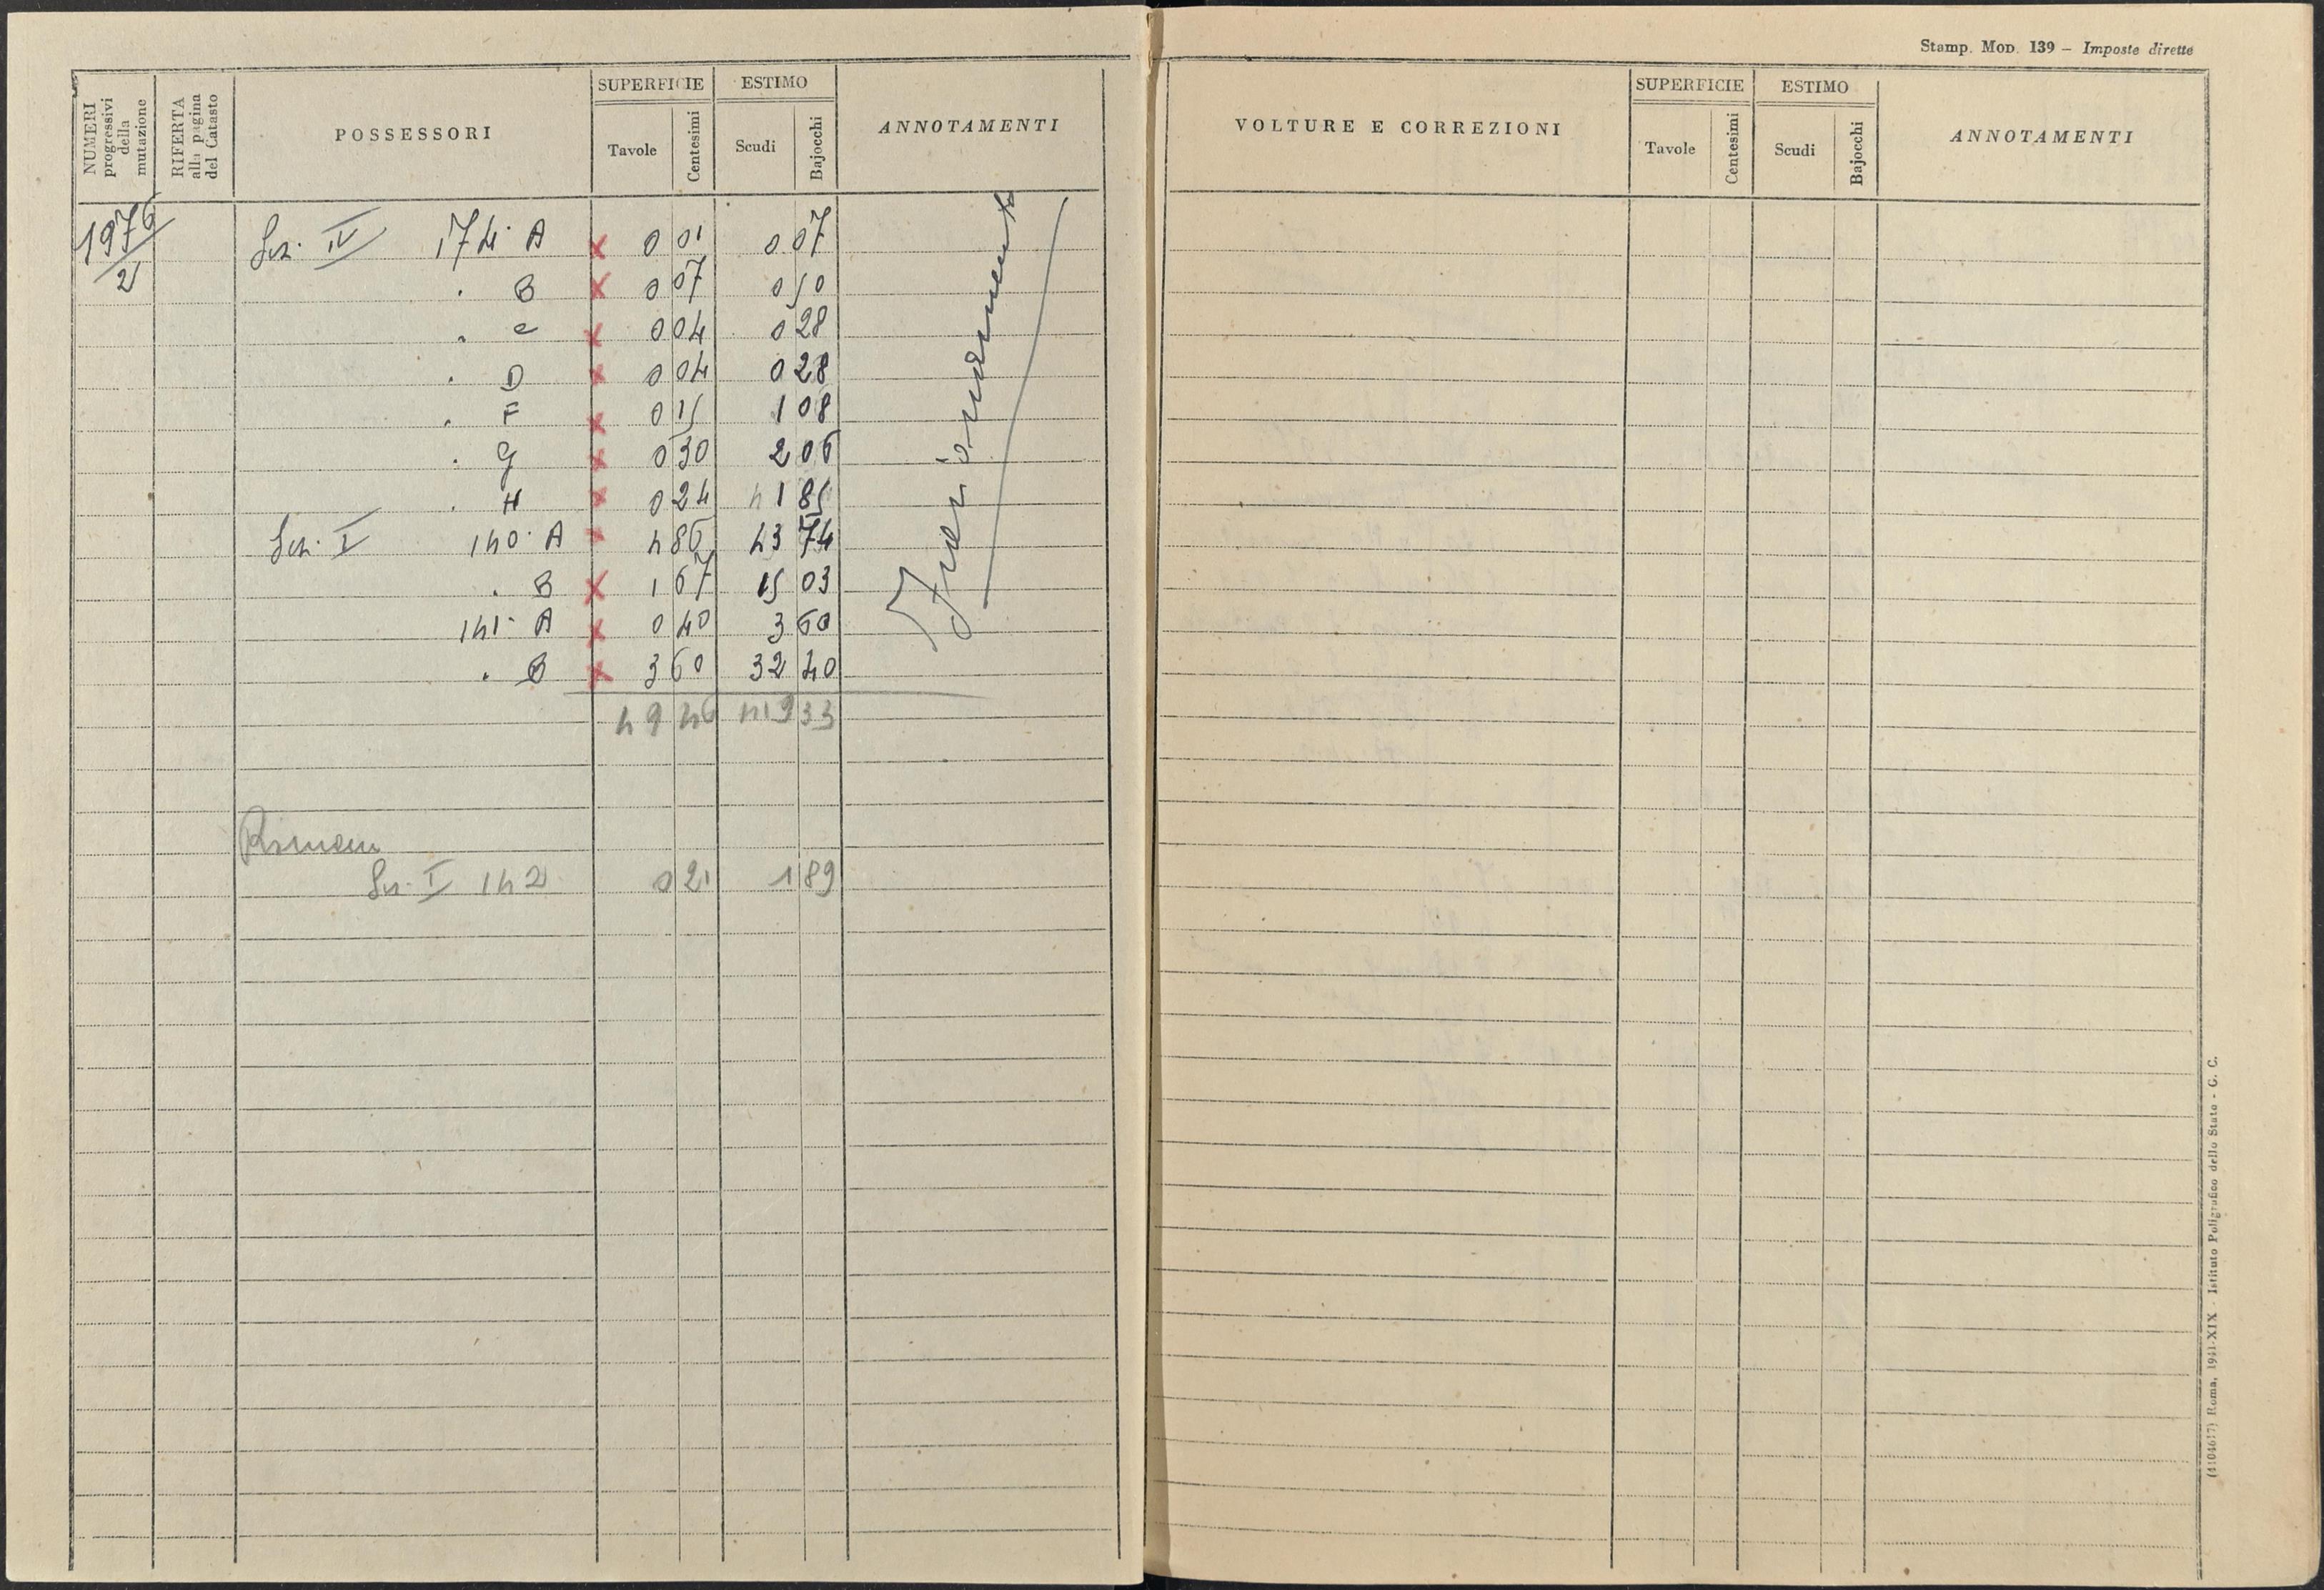 Stamp. Mod. 139 – Imposte dirette
NUMERI progressivi della mutazione
RIFERTA alla pagina del Catasto
POSSESSORI
SUPERFICIE
Tavole
Centesimi
ESTIMO
Scudi
Bajocchi
ANNOTAMENTI
1976/2 Sez. IV 174. A x 0 01 0 07
. B x 0 07 0 50
. C x 0 04 0 28
. D x 0 04 0 28
. F x 0 15 1 08
. G x 0 30 2 06
. H x 0 24 1 85
Sez. I 140. A x 4 86 43 74
. B x 1 67 15 03
141. A x 0 40 3 60
. B x 3 60 32 40
Frazionamento
33
Sez. I 142 0 21 1 89
VOLTURE E CORREZIONI
SUPERFICIE
Tavole
Centesimi
ESTIMO
Scudi
Bajocchi
ANNOTAMENTI
(4104617) Roma, 1941-XIX - Istituto Poligrafico dello Stato - G. C.